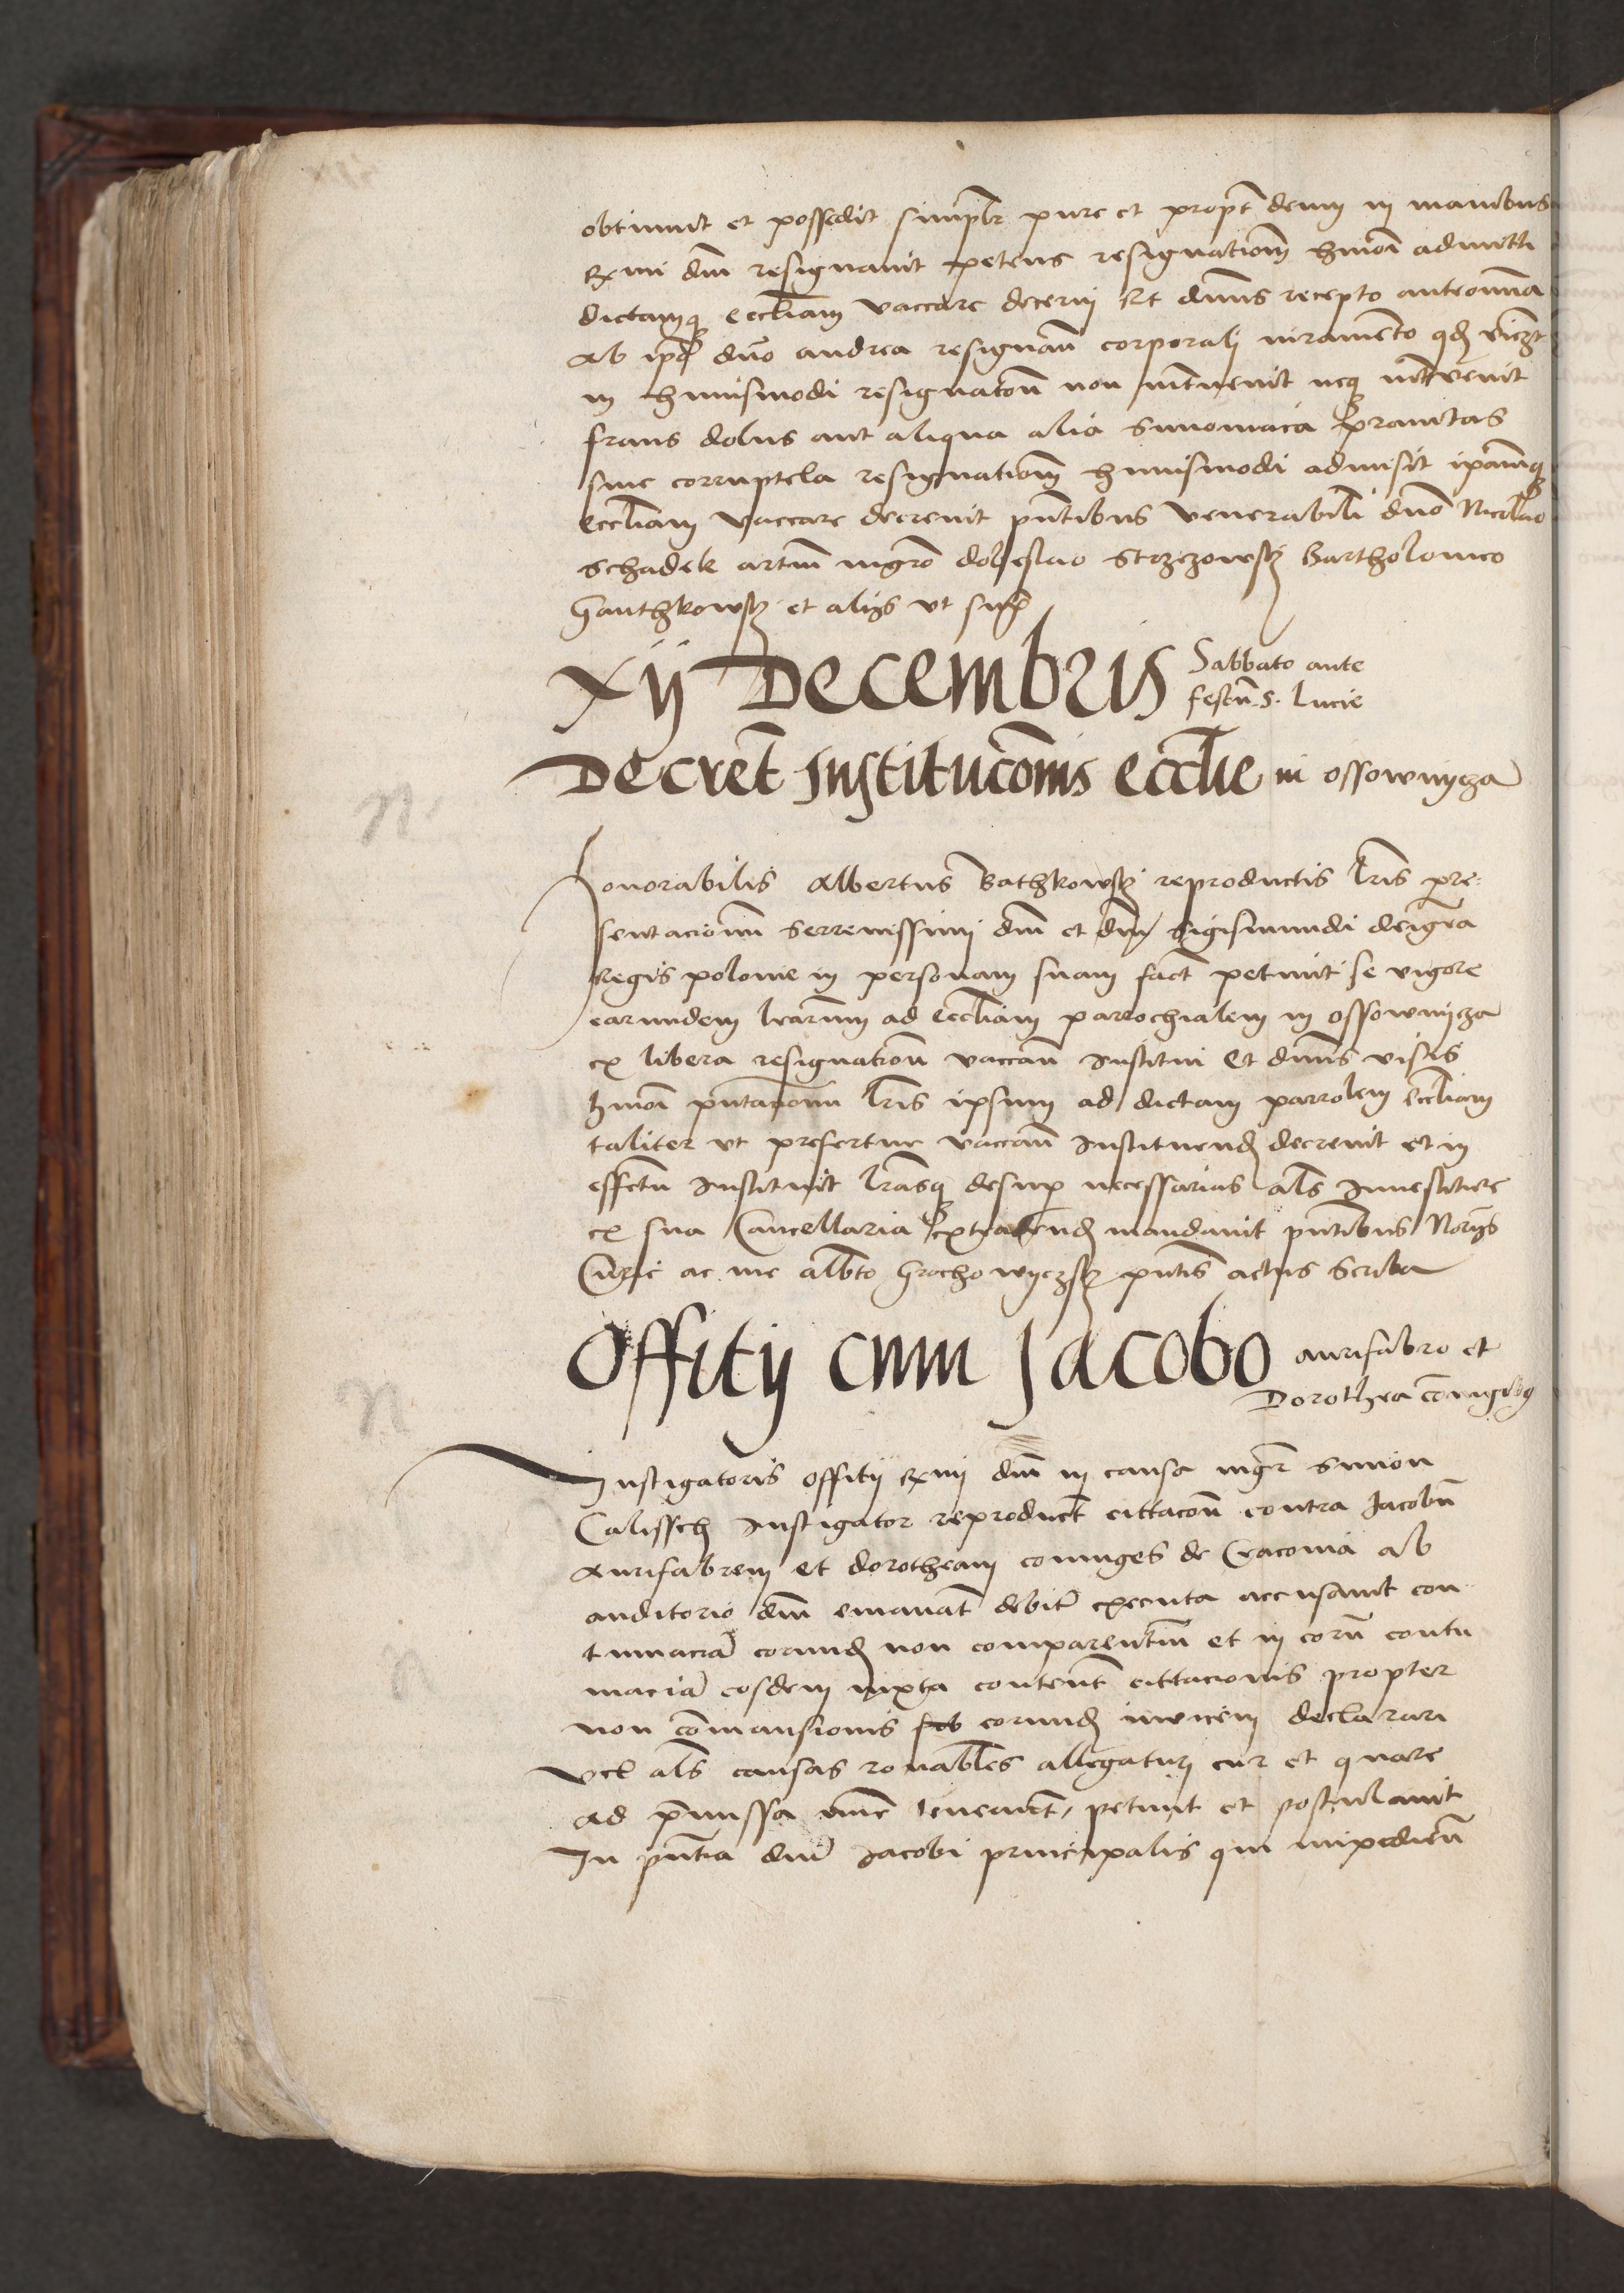 obtinuit et possedit simplr pure et propt demu in manibus
Exmi dni resignavit petens resignationem hmoi admitti
dictamq eccliam vaccare decerni Et dnus recepto antecmnia
Ab ipo dno andrea resignan corporali iuramento qd
in huiusmodi resignatone non intuenit neq intervenit
fraus dolus aut aliqua alia simoniaca pravitas
sive corruptela resignationem huiusmodi admisit ipamq
eccliam vaccare decrevit pntibus venerabili dno Nicolao
schadek artium mgro doleslao strzezowsky Bartholomeo
Ganthkowsky et aliis ut supra
Xii Decembris Sabbato ante
festu s. Lucie
Decret Institucionis ecclie in ossownycza
n.
Honorabilis Albertus Bathkowsky reproductis lris pre-
sentacionum serenissimi dni et dni Sigismundi dei gra
Regis polonie in personam suam fact petiuit se vigore
earundem lrarum ad eccliam parrochialem in Ossownycza
ex libera resignatione vaccan institui Et dnus visis
hmoi pntationum lris ipsum ad dictam parrolem eccliam
taliter ut prefertur vaccan instituend decrevit et in
effectu instituit lrasq desup necessarias als investiture
ex sua Cancellaria extradend mandavit pntibus Notariis
Curie ac me Albto Grochowyczsky pntis actus scriba
Offitii cum Jacobo aurifabro et
Dorothea coniugibus
n
Instigatoris offitii Exmi dni in causa mgr simon
Calissch instigator reproduct cittacon contra Jacobu
Aurifabrem et dorotheam coniuges de Cracovia ab
auditorio dni emanat debite executa accusavit con
tumaciam eorund non comparentium et in eoru contu
n
maciam eosdem iuxta content cittacionis propter
non comansionis eorund invicem declarari
vel als causas ronabiles allegaturi cur et quare
ad premissa mie teneant, petiuit et postulavit
In pntia dni Jacobi principalis qui impedien